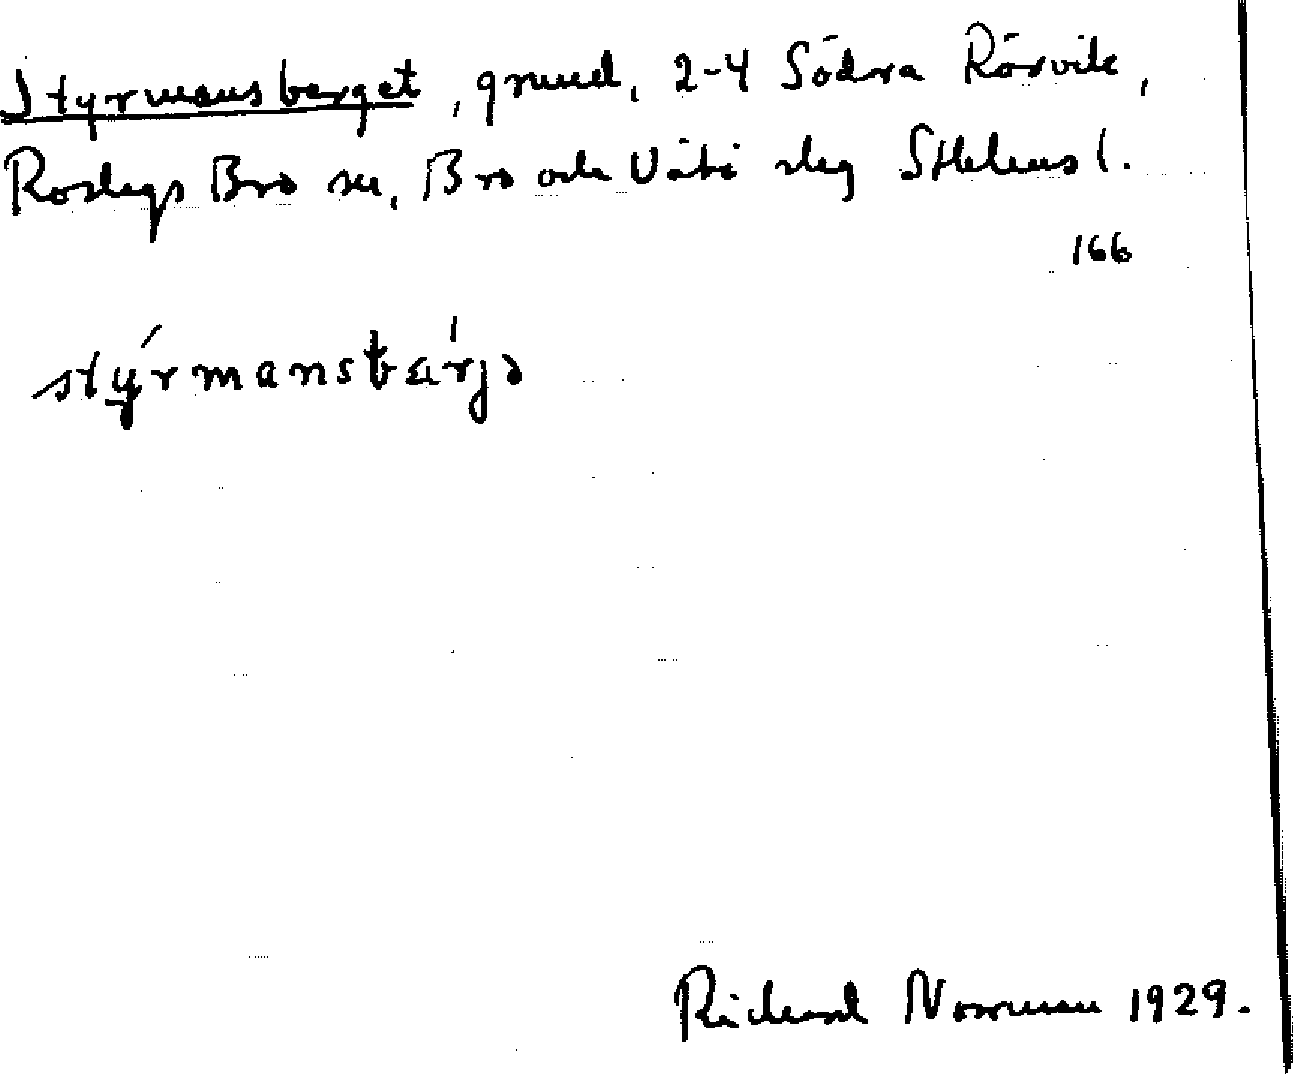 Styrmansberget, grund, 2-4 Södra Rörvik,
Roslags Bro sn, Bro och Vätö slg Sthlms l.
166
stýrmansbær̍jə
Richard Norrman 1929.